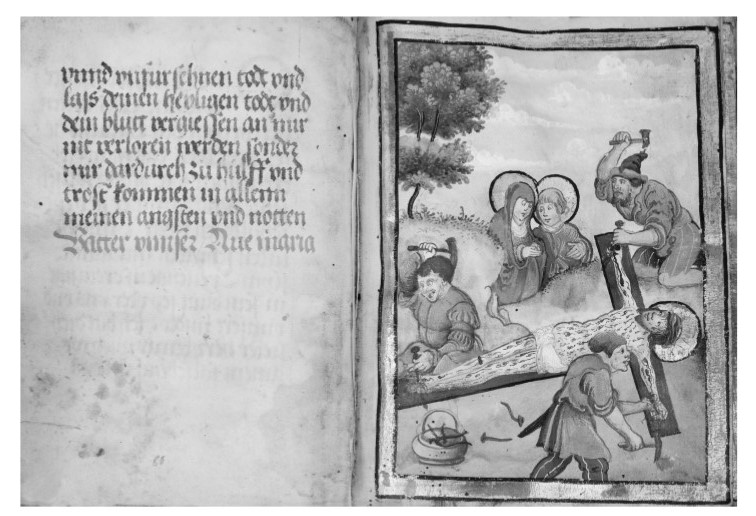 vnnd vnfursehnen todt vnd
lass deinen heyligen todt vnd
dein blutt vergiessen an mir
nit verloren werden sonder
mir dardurch zu hulff vnd
trost kommen in allenn
meinen angsten vnd notten
Vatter vnnser Aue maria